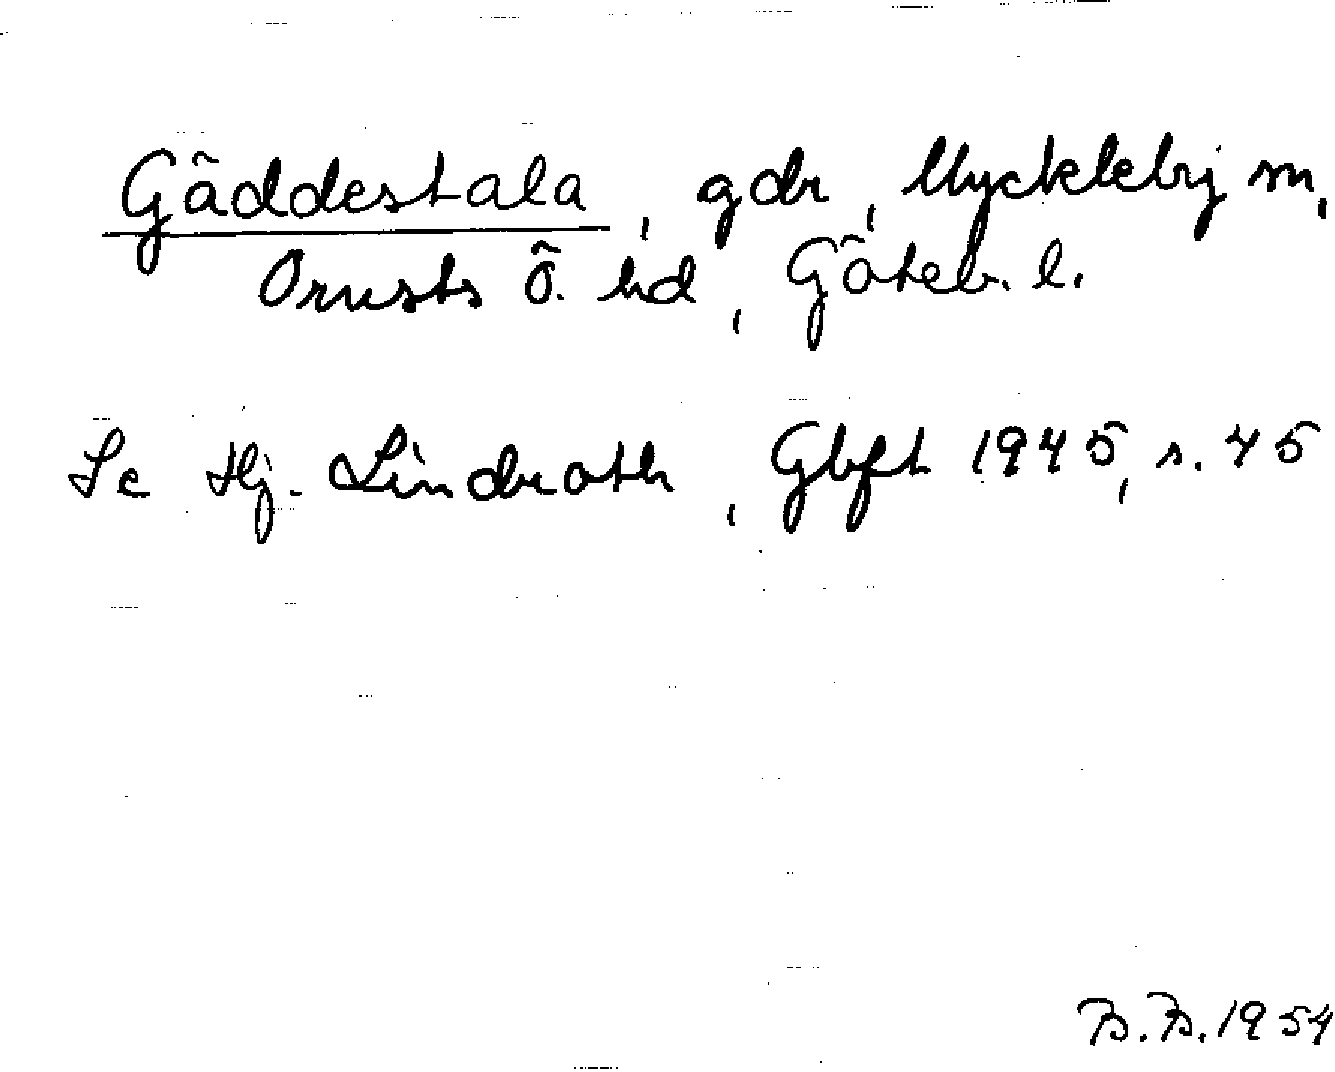 Gäddestala, gdr, Myckleby sn,
Orusts Ö. hd, Göteb. l.
Se Hj. Lindroth, Gbft 1945, s. 45
B. B. 1954